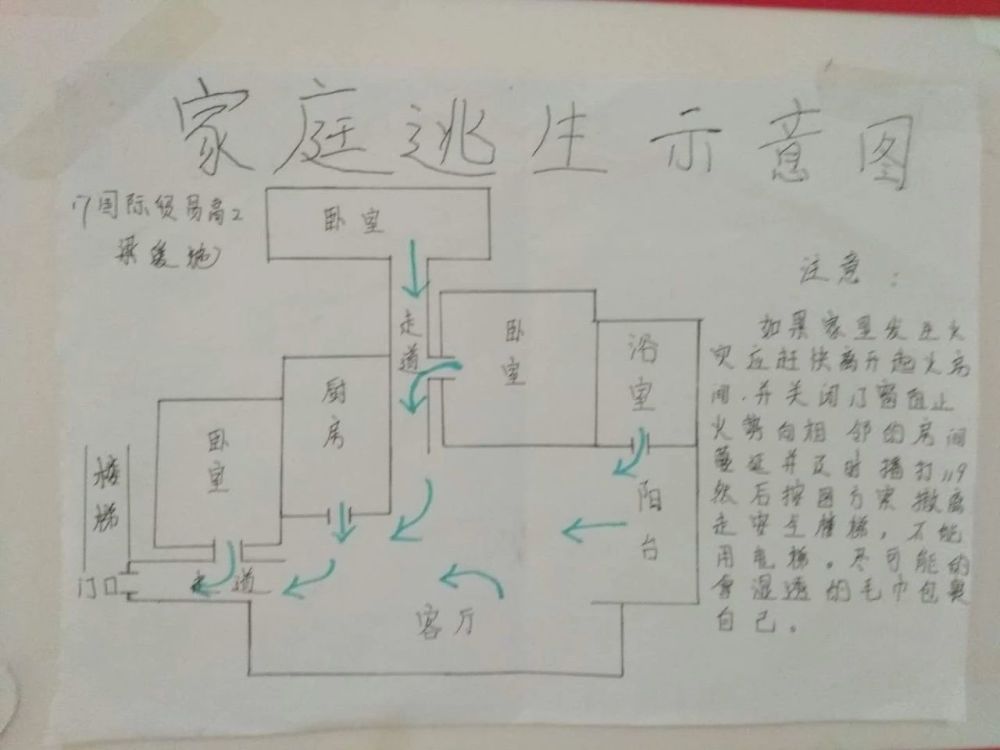 家庭逃生示意图
17国际贸易高2
梁
卧室
走道
卧室
浴室
厨房
卧室
楼梯
阳台
走道
门口
客厅
注意：
如果家里发生火
灾应赶快离开起火房
间，并关闭门窗阻止
火势向相邻的房间
蔓延并及时播打119
然后按图方案撤离
走安全楼梯，不能
用电梯。尽可能的
拿湿透的毛巾包裹
自己。